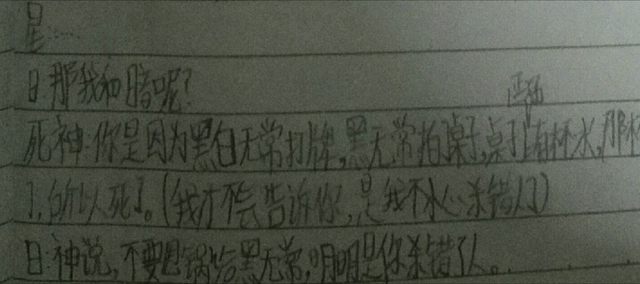 是……
日:那我和暗呢?
死神:你是因为黑白无常打牌,黑无常拍桌子,桌子上有杯水,那杯
了,所以死了。(我才不会告诉你,是我不小心杀错人了)
日:神说,不要甩锅给黑无常,明明是你杀错了人。